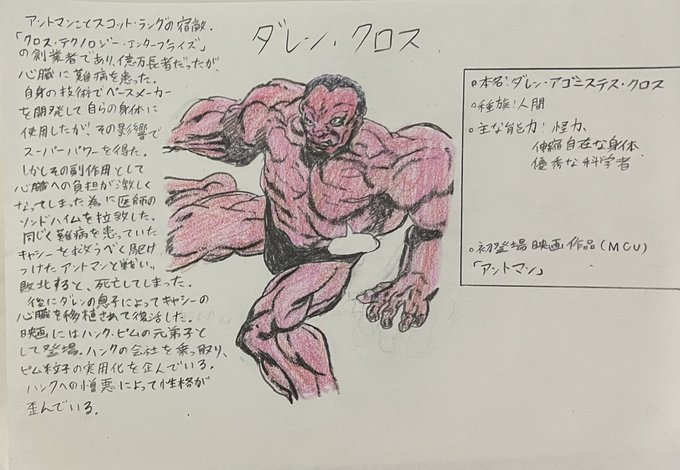 ダレン・クロス
アントマンことスコット・ラングの宿敵。
「クロス・テクノロジー・エンタープライズ」
の創業者であり、億万長者だったが、
心臓に難病を患った。
自身の技術でペースメーカー
を開発して自らの身体に
使用したが、その影響で
スーパーパワーを得た。
しかしその副作用として
心臓への負担が激しく
なってしまった為に医師の
ソンドハイムを拉致した。
同じく難病を患っていた
キャシーを救うべく駆け
つけたアントマンと戦い、
敗北すると、死亡してしまった。
後にダレンの息子によってキャシーの
心臓を移植されて復活した。
映画にはハンク・ピムの元弟子と
して登場。ハンクの会社を乗っ取り、
ピム粒子の実用化を企んでいる。
ハンクへの憎悪によって性格が
歪んでいる。
○本名:ダレン・アゴニステス・クロス
○種族:人間
○主な能力:怪力、
伸縮自在な身体
優秀な科学者
○初登場映画作品(MCU)
「アントマン」